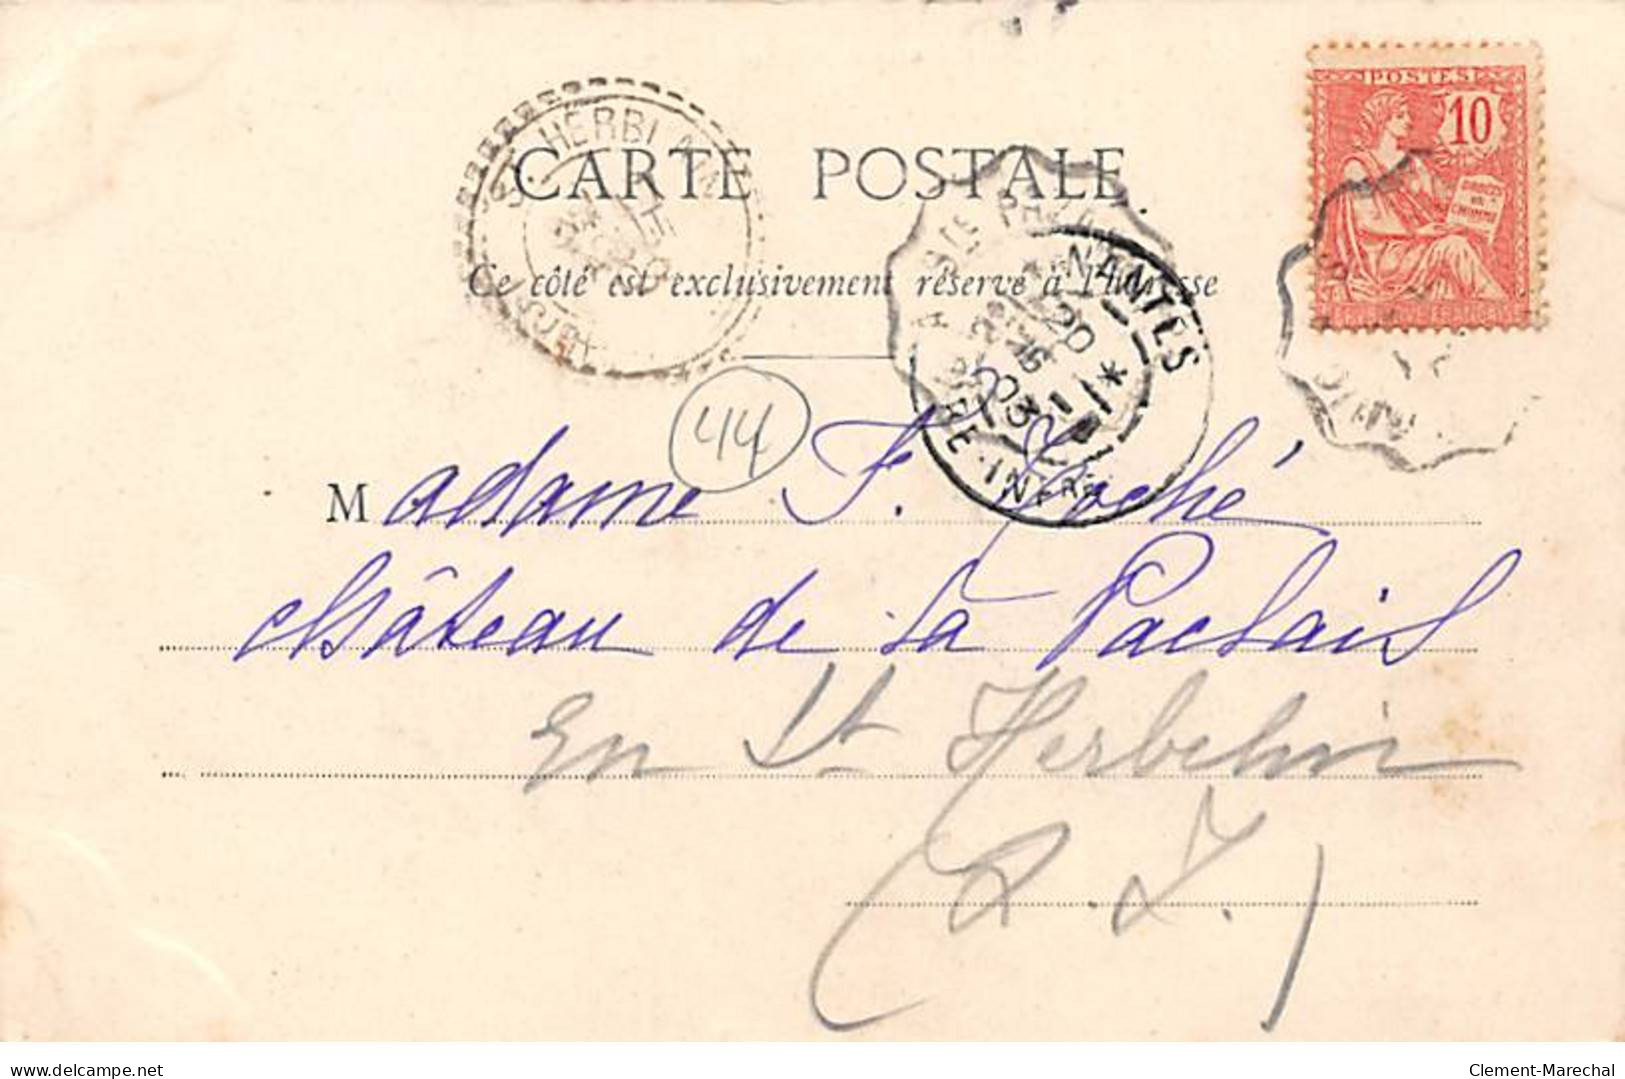 POSTES
10
ST HERBLAIN
CARTE POSTALE
Ce côté est exclusivement réservé à l'adresse
NANTES
20
03
RE-INFRE
44
Madame F. Roché
château de la Paclais
En St Herbelin
(L. I.)
www.delcampe.net
Clement-Marechal